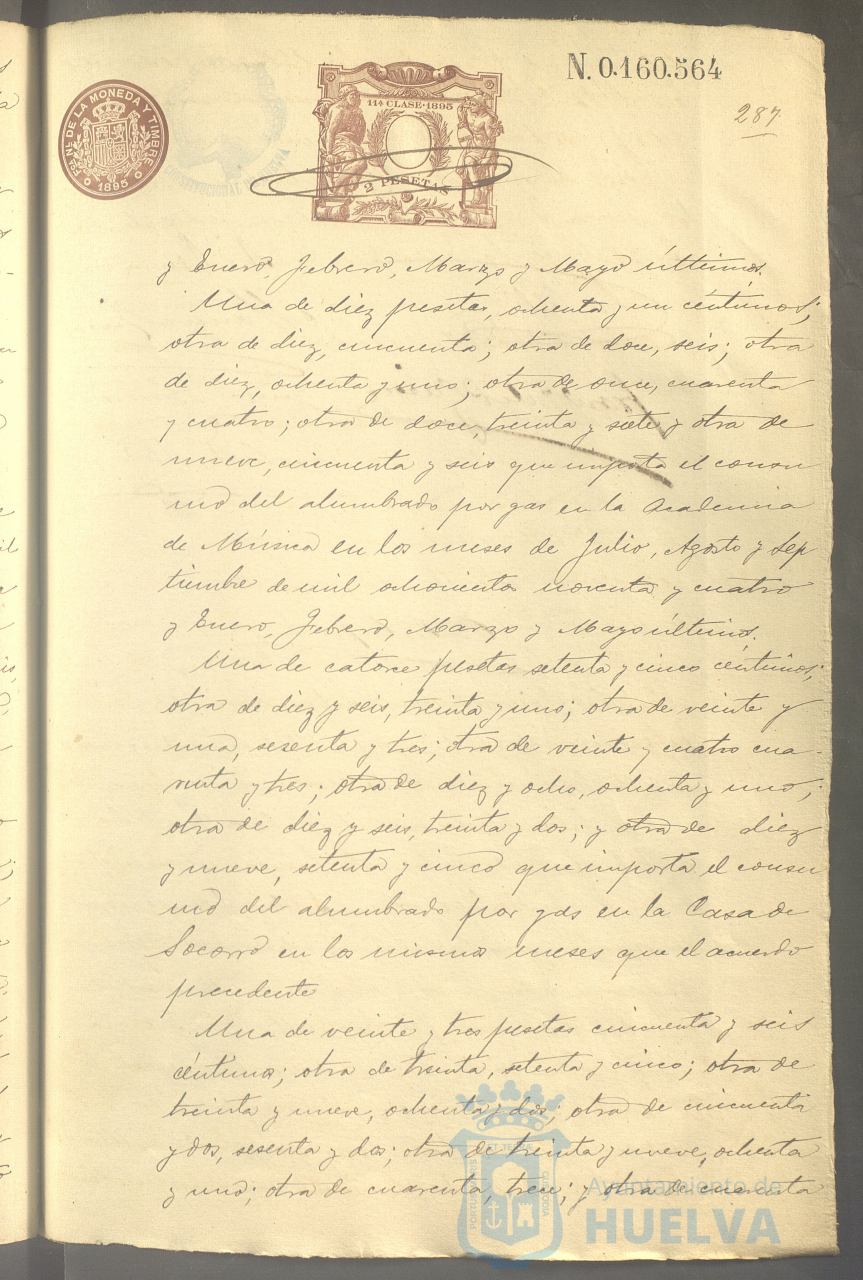 N. 0.160.564
287
FCA. NAL. DE LA MONEDA Y TIMBRE
1895
11ª CLASE·1895
2 PESETAS
y Enero, Febrero, Marzo y Mayo últimos.
Una de diez pesetas, ochenta y un céntimos;
otra de diez, cincuenta; otra de doce, seis; otra
de diez, ochenta y uno; otra de once, cuarenta
y cuatro; otra de doce, treinta y siete y otra de
nueve, cincuenta y seis que importa el consu
mo del alumbrado por gas en la Academia
de Música en los meses de Julio, Agosto y Sep
tiembre de mil ochocientos noventa y cuatro
y Enero, Febrero, Marzo y Mayo últimos.
Una de catorce pesetas setenta y cinco céntimos;
otra de diez y seis, treinta y uno; otra de veinte y
una, sesenta y tres; otra de veinte y cuatro cua-
renta y tres; otra de diez y ocho, ochenta y uno;
otra de diez y seis, treinta y dos; y otra de diez
y nueve, setenta y cinco que importa el consu
mo del alumbrado por gas en la Casa de
Socorro en los mismos meses que el acuerdo
precedente
Una de veinte y tres pesetas cincuenta y seis
céntimos; otra de treinta, setenta y cinco; otra de
treinta y nueve, ochenta y dos; otra de cincuenta
y dos, sesenta y dos; otra de treinta y nueve, ochenta
y uno; otra de cuarenta, trece; y otra de cuarenta
Ayuntamiento de
HUELVA